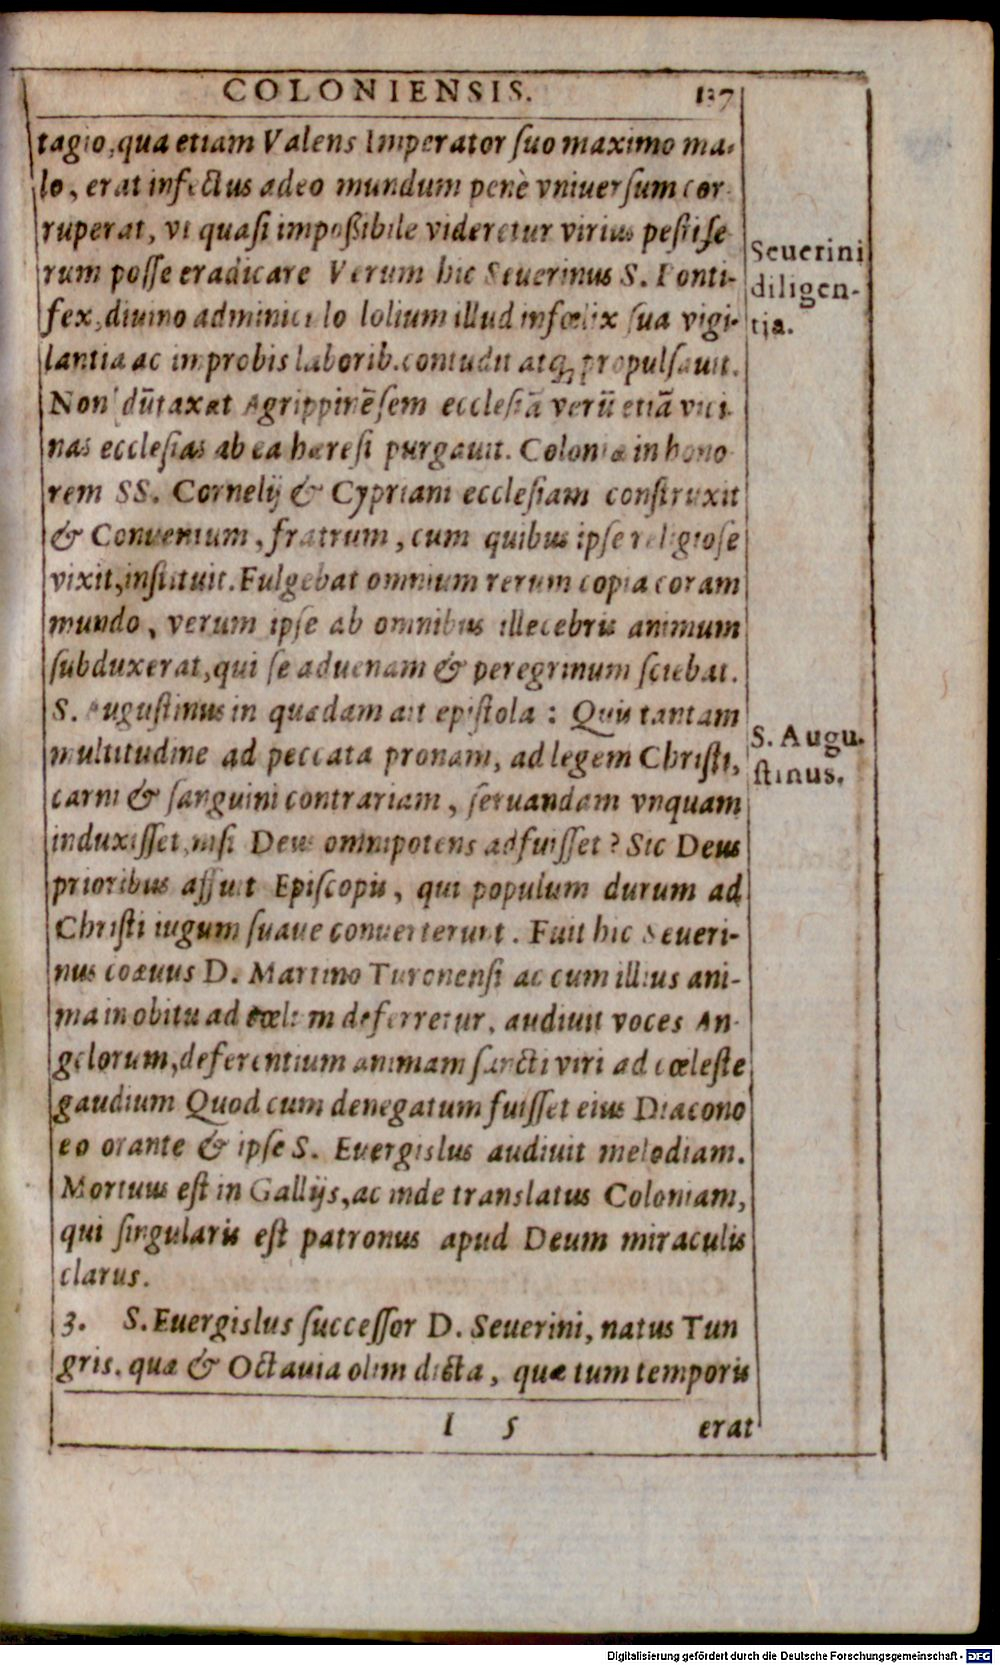 COLONIENSIS. 137
tagio, qua etiam Valens Imperator ſuo maximo ma-
lo, erat infectus adeo mundum penè vniuerſum cor-
ruperat, vt quaſi impoßibile videretur virius peſtife
rum poſſe eradicare Verum hic Seuerinus S. Ponti-
fex, diuino adminiculo lolium illud infœlix ſua vigi-
lantia ac improbis laborib. contudit atq; propulſauit.
Non dūtaxat Agrippinēſem eccleſiā verū etiā vici-
nas eccleſias ab ea hæreſi purgauit. Coloniæ in hono-
rem SS. Cornelij & Cypriani eccleſiam conſtruxit
& Conuentum, fratrum, cum quibus ipſe religioſe
vixit, inſtituit. Fulgebat omnium rerum copia coram
mundo, verum ipſe ab omnibus illecebris animum
ſubduxerat, qui ſe aduenam & peregrinum ſciebat.
S. Auguſtinus in quadam ait epiſtola : Quis tantam
multitudine ad peccata pronam, ad legem Chriſti,
carni & ſanguini contrariam, ſeruandam vnquam
induxiſſet, niſi Deus omnipotens adfuiſſet ? Sic Deus
prioribus affuit Epiſcopis, qui populum durum ad
Chriſti iugum ſuaue conuerterunt. Fuit hic Seueri-
nus coæuus D. Martino Turonenſi ac cum illius ani-
ma in obitu ad cœlum deferretur, audiuit voces An-
gelorum, deferentium animam ſancti viri ad cœleſte
gaudium Quod cum denegatum fuiſſet eius Diacono
eo orante & ipſe S. Euergislus audiuit melodiam.
Mortuus eſt in Gallijs, ac inde translatus Coloniam,
qui ſingularis eſt patronus apud Deum miraculis
clarus.
3. S. Euergislus ſucceſſor D. Seuerini, natus Tun
gris. quæ & Octauia olim dicta, quæ tum temporis
I 5 erat
Seuerini
diligen-
tia.
S. Augu-
ſtinus.
Digitalisierung gefördert durch die Deutsche Forschungsgemeinschaft - DFG